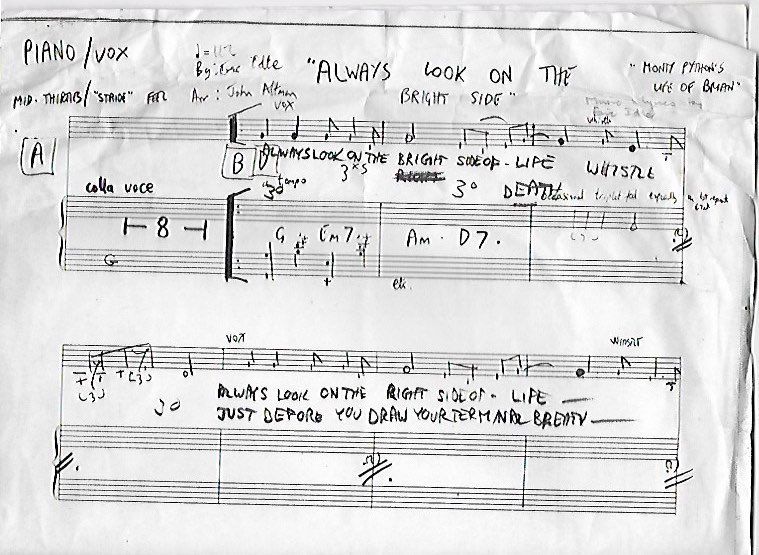 PIANO/VOX
♩=112
By: Eric Idle
"ALWAYS LOOK ON THE
BRIGHT SIDE"
"MONTY PYTHON'S
LIFE OF BRIAN"
MID-THIRTIES/"STRIDE" FEEL
Arr: John Altman
VOX
whistle
A
B
ALWAYS LOOK ON THE BRIGHT SIDE OF - LIFE
WHISTLE
3xs
3o
DEATH
colla voce
a tempo
3o
occasional triplet feel
8
G Em7
Am D7.
G
etc.
VOX
WHISTLE
3o
ALWAYS LOOK ON THE RIGHT SIDE OF - LIFE
JUST BEFORE YOU DRAW YOUR TERMINAL BREATH